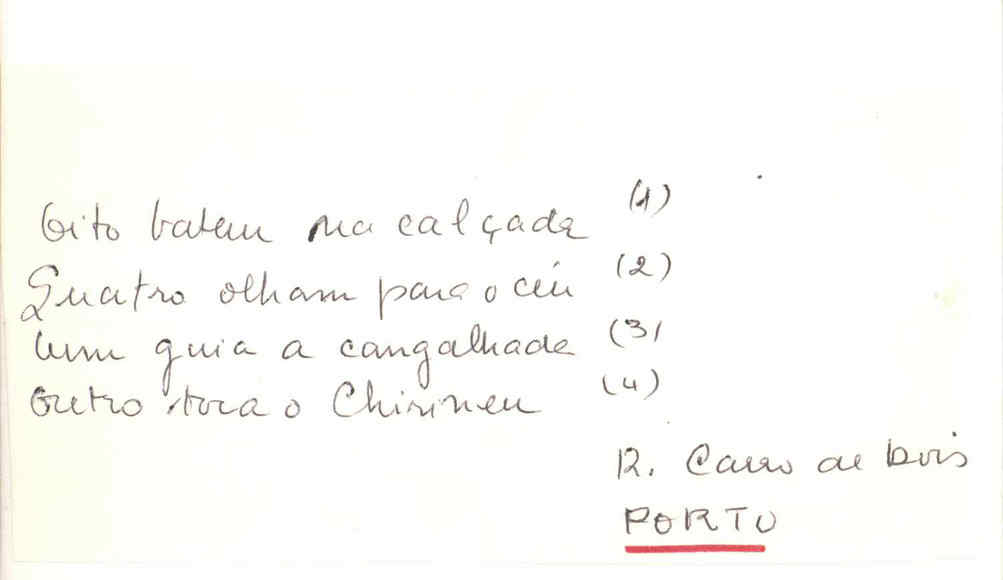 Oito batem na calçada (1)
Quatro olham para o céu (2)
Um guia a cangalhada (3)
Outro toca o Chirineu (4)
R. Carro de bois
PORTO